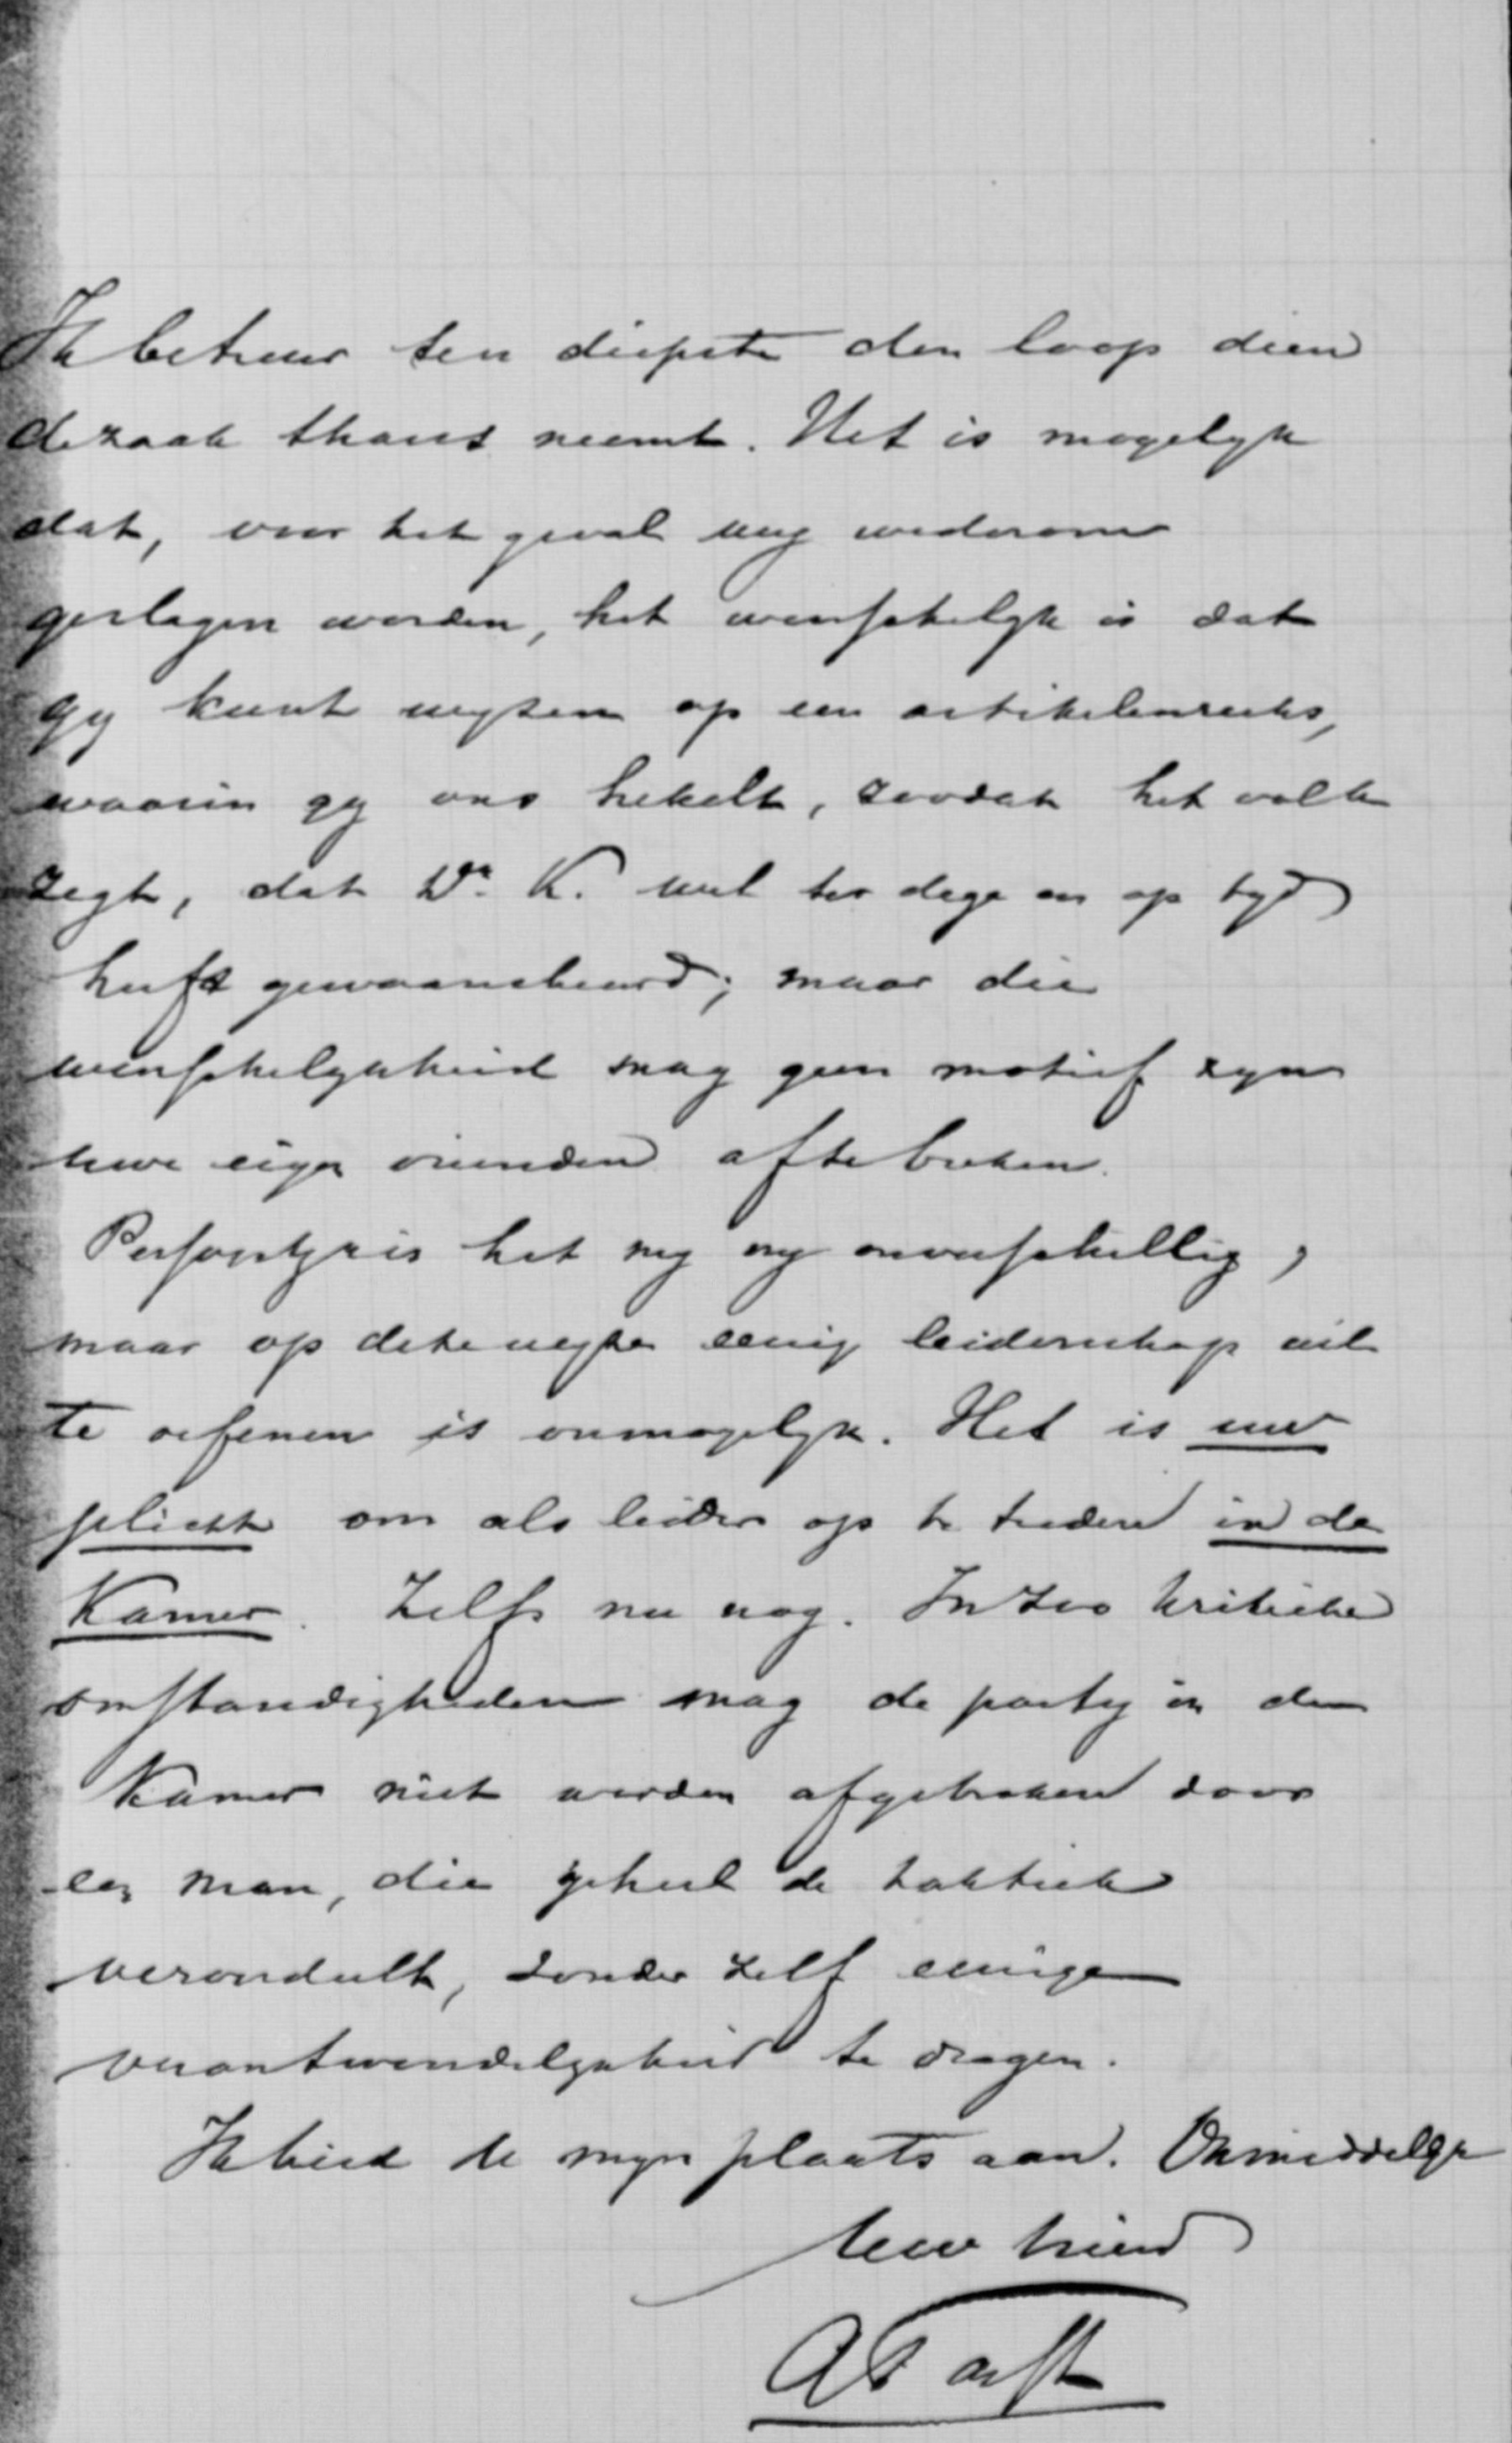 Ik betreur ten diepste den loop dien
de zaak thans neemt. Het is mogelyk
dat, voor het geval wy wederom
geslagen worden, het wenschelyk is dat
gy kunt wyzen op een artikelenreeks,
waarin gy ons hekelt, zoodat het volk
zegt, dat Dr. K. wel ter dege en op tyd
heeft gewaarschuwd; maar die
wenschelykheid mag geen motief zyn
uwe eigen vrienden afte breken.
Persoonlyk is het my onverschillig,
maar op deze wyze eenig leiderschap uit
te oefenen is onmogelyk. Het is uw
plicht om als leider op te treden in de
Kamer. Zelfs nu nog. In zoo kritieke
omstandigheden mag de party in de
Kamer niet worden afgebroken door
een man, die geheel de taktiek
veroordeelt, zonder zelf eenige
verantwoordelykheid te dragen.
Ik bied U myn plaats aan. Onmiddelyk
Uw vriend